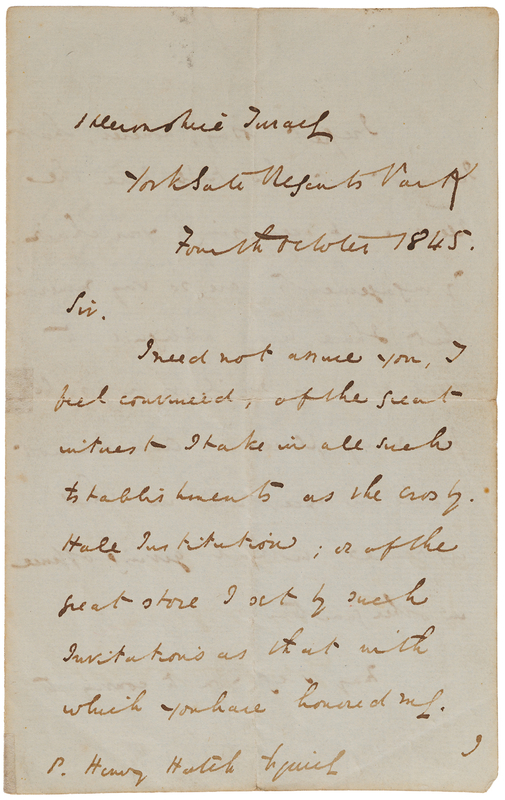 1 Devonshire Terrace
York Gate Regents Park
Fourth October 1845.
Sir.
I need not assure you, I
feel convinced, of the great
interest I take in all such
Establishments as the Crosby.
Hall Institution; or of the
great store I set by such
Invitations as that with
which you have honored me.
P. Henry Hatch Esquire